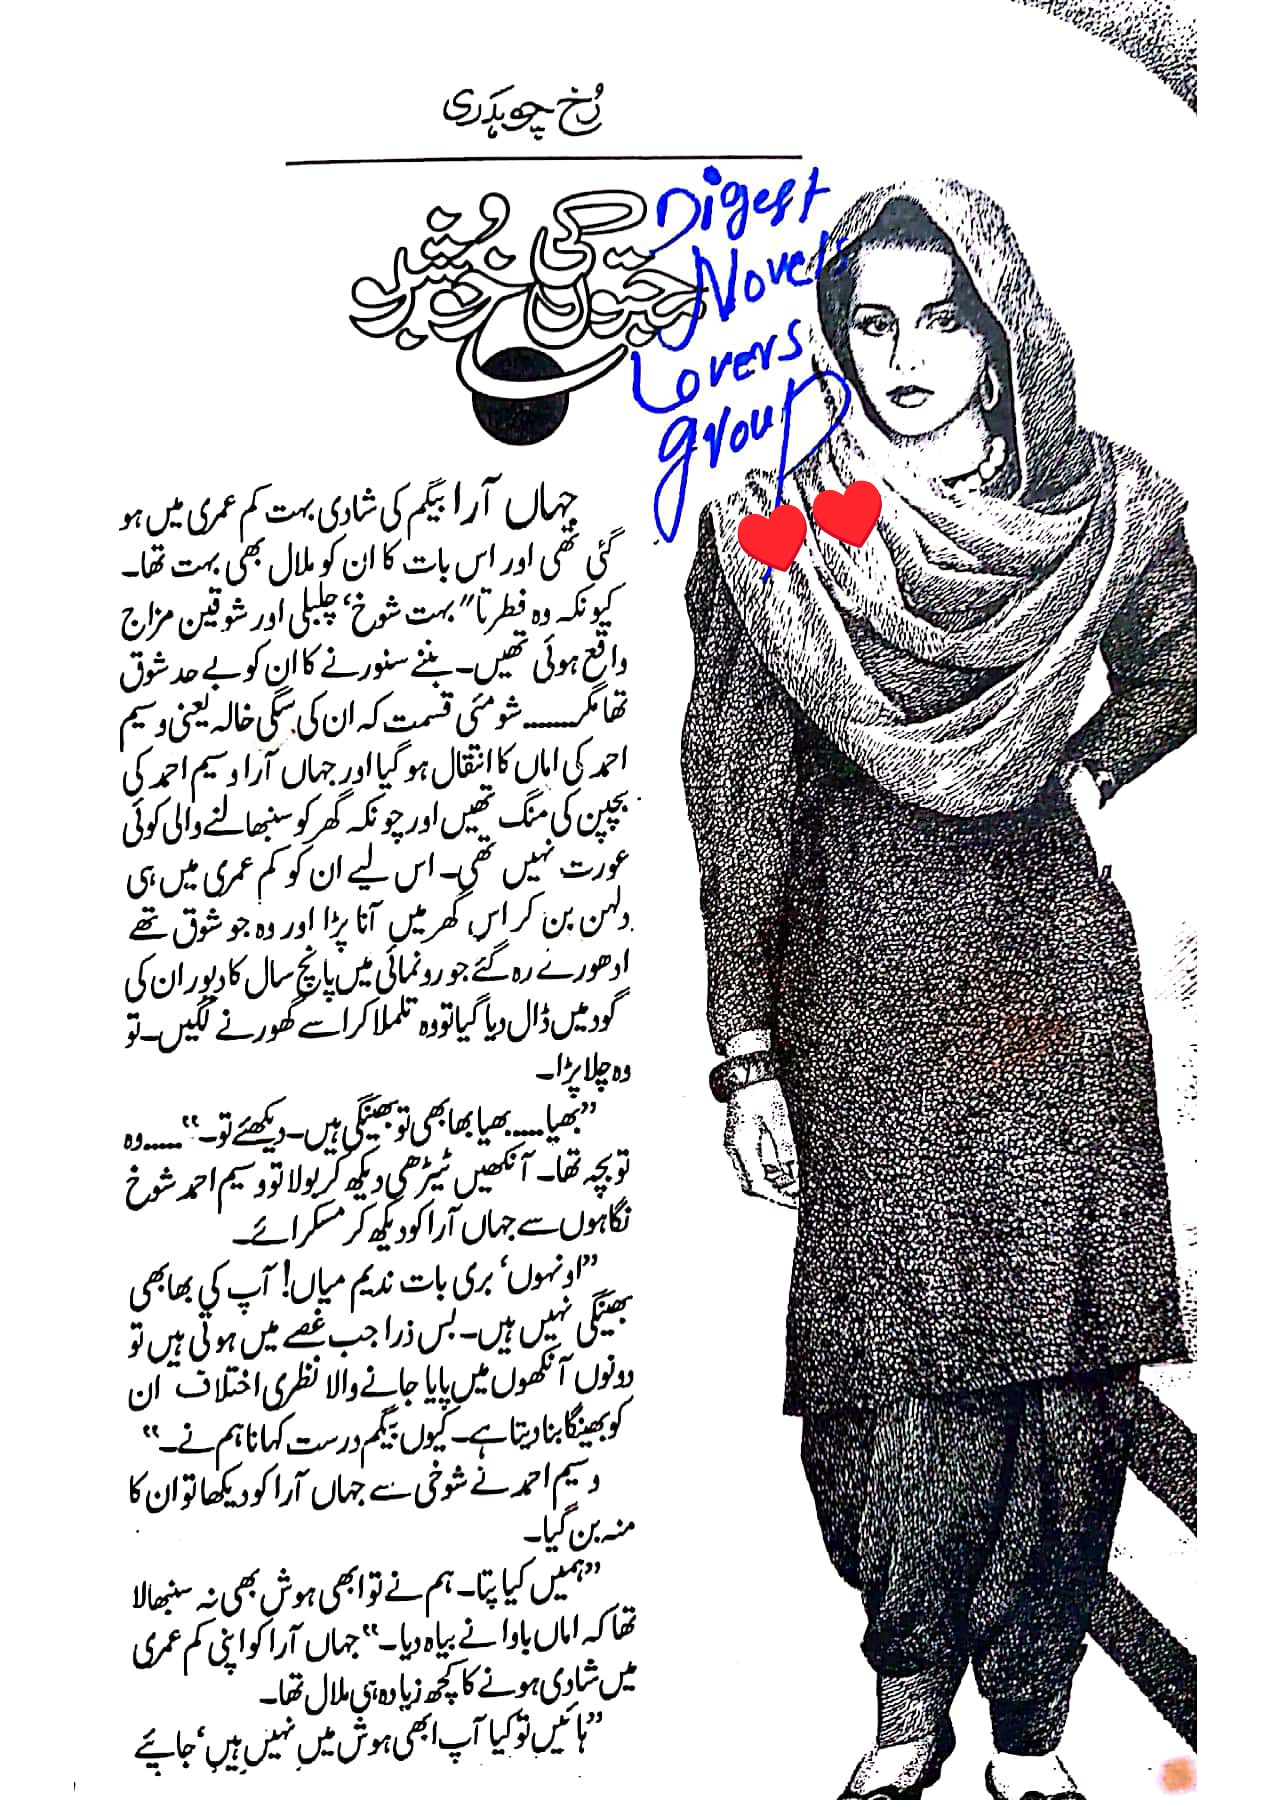 رُخ چوہدری
چاہتوں کی خوشبو
Digest
Novels
Lovers
group
جہاں آرا بیگم کی شادی بہت کم عمری میں ہو
گئی تھی اور اس بات کا ان کو ملال بھی بہت تھا۔
کیونکہ وہ فطرتا" بہت شوخ، چلبلی اور شوقین مزاج
واقع ہوئی تھیں۔ بننے سنورنے کا ان کو بے حد شوق
تھا مگر....... شومئی قسمت کہ ان کی سگی خالہ یعنی وسیم
احمد کی اماں کا انتقال ہو گیا اور جہاں آرا وسیم احمد کی
بچپن کی منگ تھیں اور چونکہ گھر کو سنبھالنے والی کوئی
عورت نہیں تھی۔ اس لیے ان کو کم عمری میں ہی
دلہن بن کر اس گھر میں آنا پڑا اور وہ جو شوق تھے
ادھورے رہ گئے جو رونمائی میں پانچ سال کا دیور ان کی
گود میں ڈال دیا گیا تو وہ تلملا کر اسے گھورنے لگیں۔ تو
وہ چلا پڑا۔
"بھیا..... بھیا بھابھی تو بھینگی ہیں۔ دیکھئے تو۔"..... وہ
تو بچہ تھا۔ آنکھیں ٹیڑھی دیکھ کر بولا تو وسیم احمد شوخ
نگاہوں سے جہاں آرا کو دیکھ کر مسکرائے۔
"اونہوں، بری بات ندیم میاں! آپ کی بھابھی
بھینگی نہیں ہیں۔ بس ذرا جب غصے میں ہوتی ہیں تو
دونوں آنکھوں میں پایا جانے والا نظری اختلاف ان
کو بھینگا بنا دیتا ہے۔ کیوں بیگم درست کہا نا ہم نے۔"
وسیم احمد نے شوخی سے جہاں آرا کو دیکھا تو ان کا
منہ بن گیا۔
"ہمیں کیا پتا۔ ہم نے تو ابھی ہوش بھی نہ سنبھالا
تھا کہ اماں باوا نے بیاہ دیا۔" جہاں آرا کو اپنی کم عمری
میں شادی ہونے کا کچھ زیادہ ہی ملال تھا۔
"ہائیں تو کیا آپ ابھی ہوش میں نہیں ہیں، جایئے